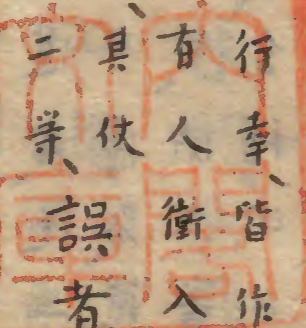 行幸、皆作
有人衝入
、其仗
二等、誤者